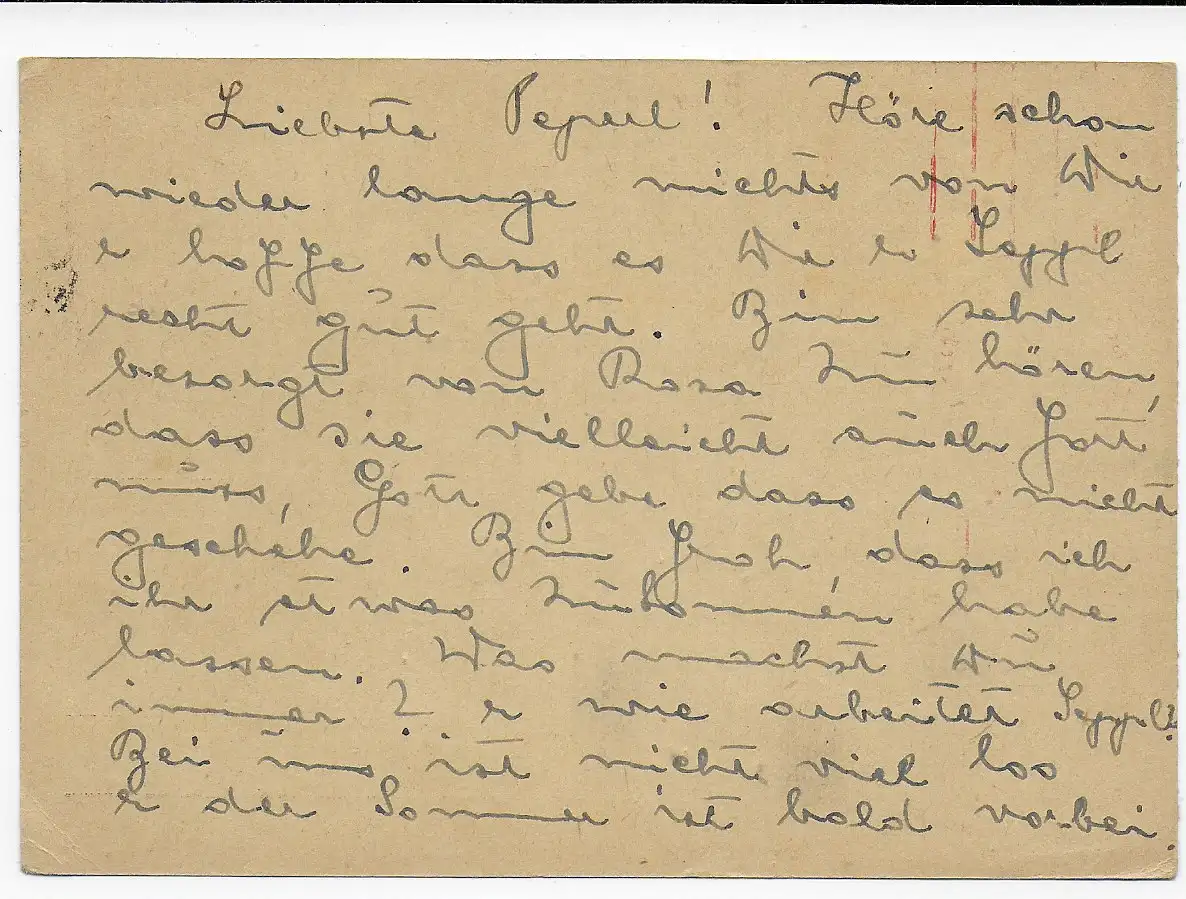 Liebste Peperl! Höre schon
wieder lange nichts von Dir
& hoffe dass es Dir & Seppl
recht gut geht. Bin sehr
besorgt von Rosa zu hören,
dass sie vielleicht auch fort
muss, Gott gebe dass es nicht
geschehe. Bin froh, dass ich
ihr etwas zukommen habe
lassen. Was machst Du
immer? & wie arbeitet Seppl?
Bei uns ist nicht viel los
& der Sommer ist bald vorbei.